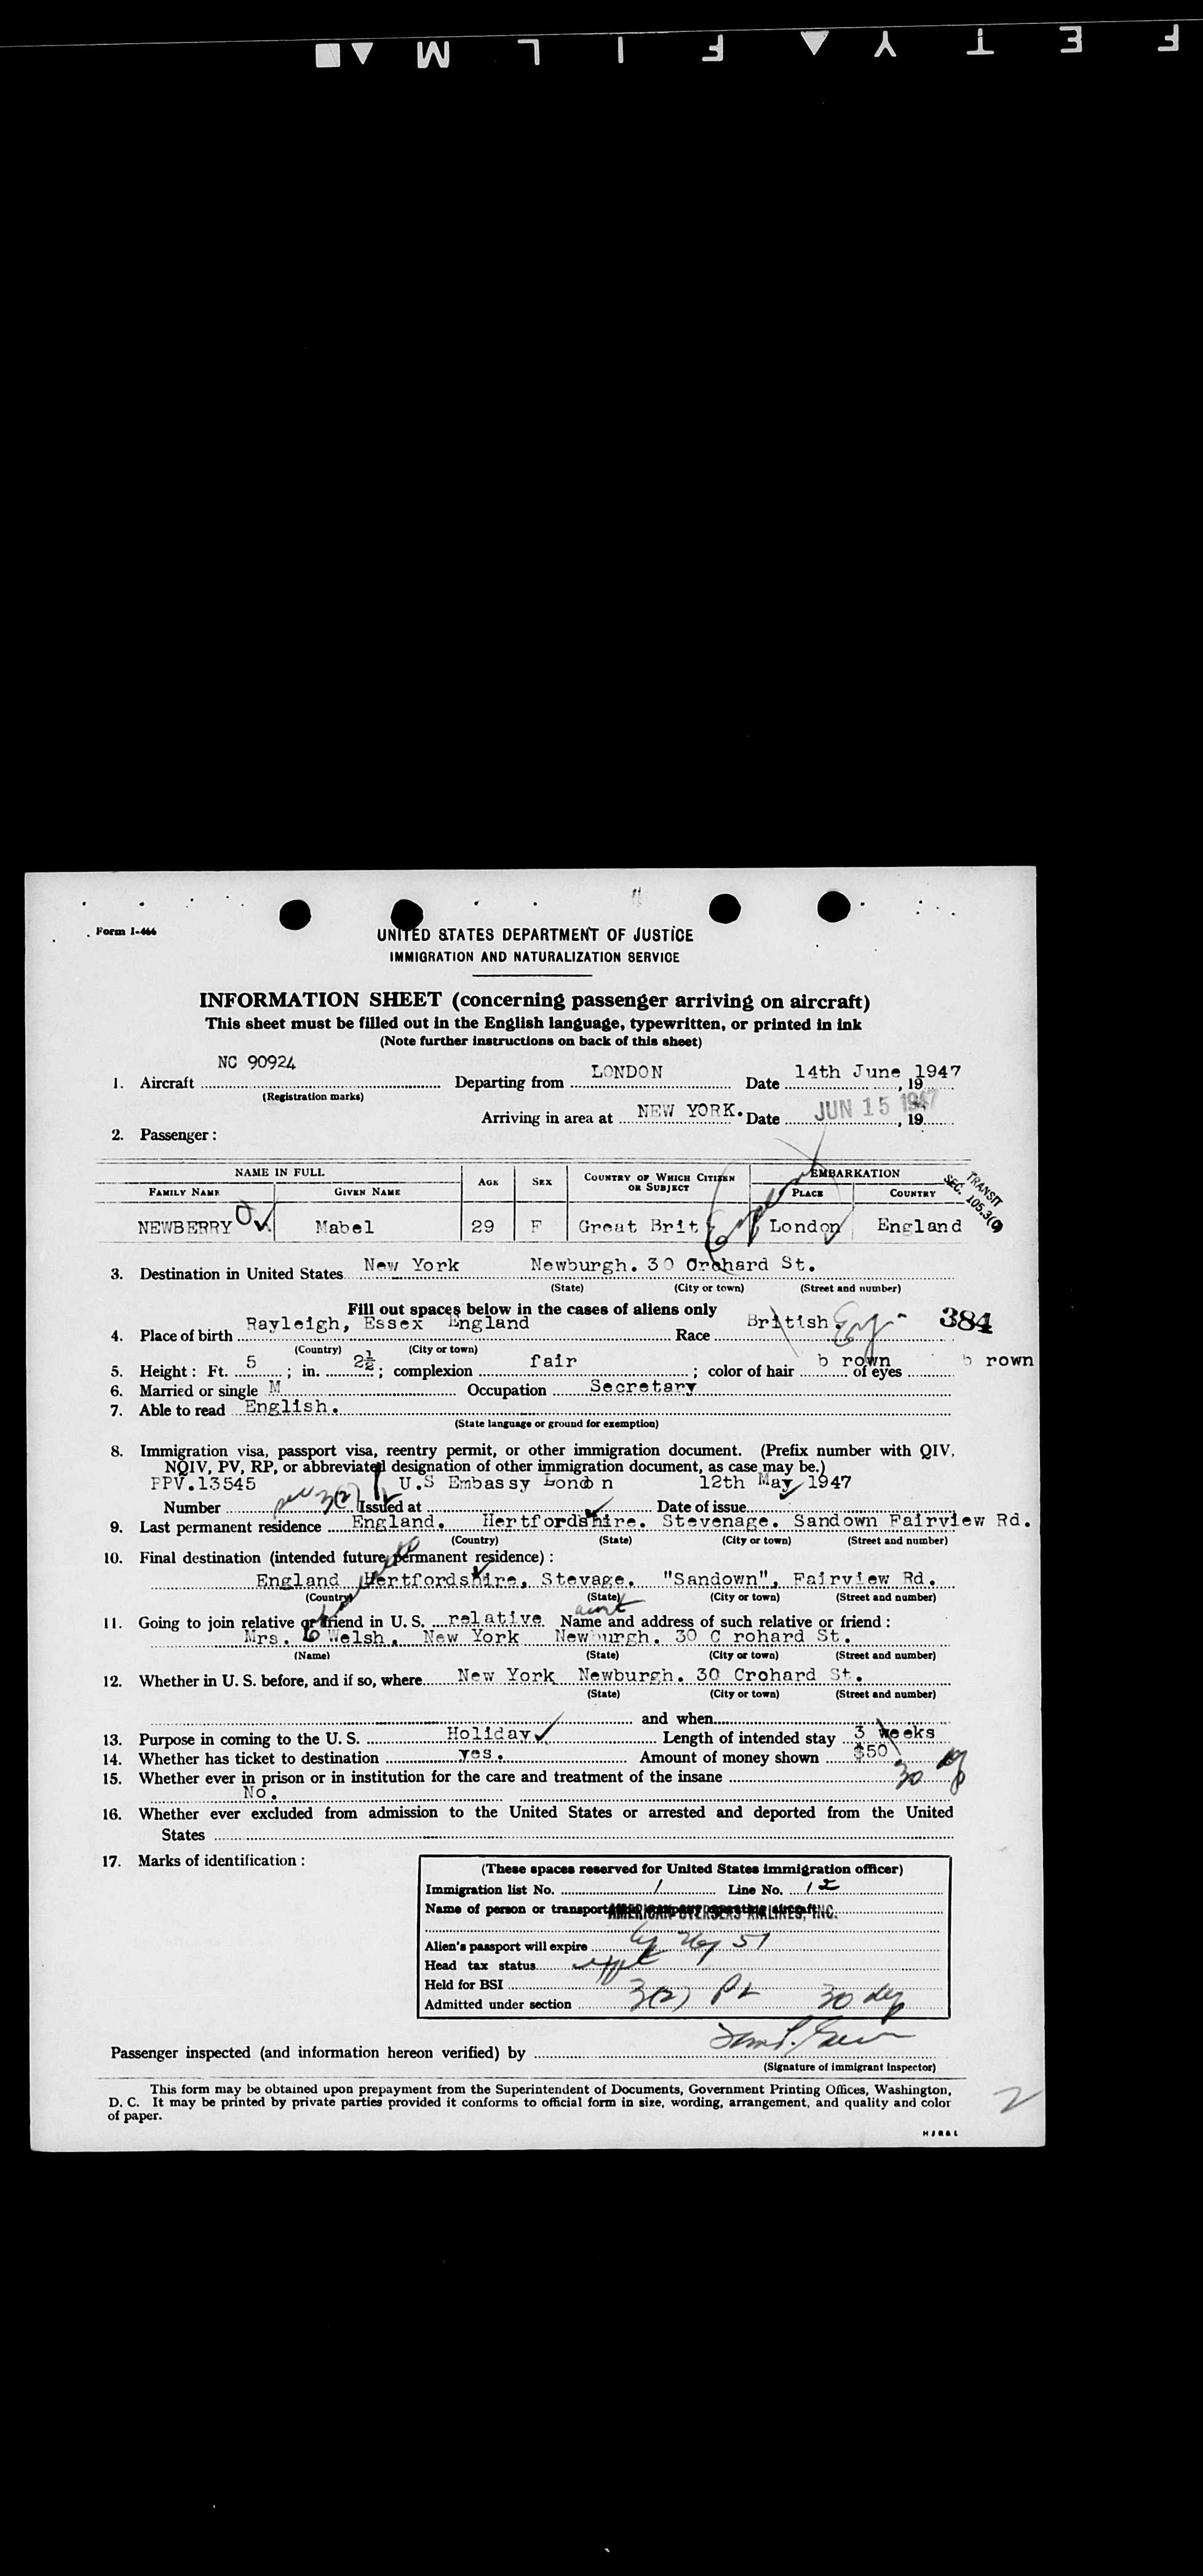 SAFETY FILM
Form I-466
UNITED STATES DEPARTMENT OF JUSTICE
IMMIGRATION AND NATURALIZATION SERVICE
INFORMATION SHEET (concerning passenger arriving on aircraft)
This sheet must be filled out in the English language, typewritten, or printed in ink
(Note further instructions on back of this sheet)
NC 90924 LONDON 14th June 1947
1. Aircraft Departing from Date , 19
(Registration marks)
Arriving in area at NEW YORK. Date JUN 15 1947 , 19
2. Passenger:
NAME IN FULL AGE SEX COUNTRY OF WHICH CITIZEN OR SUBJECT EMBARKATION
FAMILY NAME GIVEN NAME PLACE COUNTRY
TRANSIT
SEC. 105.3(
NEWBERRY Mabel 29 F Great Brit London England
3. Destination in United States New York Newburgh. 30 Orchard St.
(State) (City or town) (Street and number)
Fill out spaces below in the cases of aliens only
4. Place of birth Rayleigh, Essex England Race British. Eng 384
(Country) (City or town)
5. Height: Ft. 5 ; in. 2½ ; complexion fair ; color of hair b rown of eyes b rown
6. Married or single M Occupation Secretary
7. Able to read English.
(State language or ground for exemption)
8. Immigration visa, passport visa, reentry permit, or other immigration document. (Prefix number with QIV,
NQIV, PV, RP, or abbreviated designation of other immigration document, as case may be.)
PPV.13545 U.S Embassy London 12th May 1947
Number sec 3(2) Issued at Date of issue
9. Last permanent residence England. Hertfordshire. Stevenage. Sandown Fairview Rd.
(Country) (State) (City or town) (Street and number)
10. Final destination (intended future permanent residence):
England Hertfordshire, Stevage. "Sandown", Fairview Rd.
(Country) (State) (City or town) (Street and number)
aunt
11. Going to join relative or friend in U. S. relative Name and address of such relative or friend:
Mrs. Welsh. New York Newburgh. 30 C rohard St.
(Name) (State) (City or town) (Street and number)
12. Whether in U. S. before, and if so, where New York Newburgh. 30 Crohard St.
(State) (City or town) (Street and number)
and when
13. Purpose in coming to the U. S. Holiday Length of intended stay 3 weeks
14. Whether has ticket to destination yes. Amount of money shown $50
30
15. Whether ever in prison or in institution for the care and treatment of the insane
No.
16. Whether ever excluded from admission to the United States or arrested and deported from the United
States
17. Marks of identification:
(These spaces reserved for United States immigration officer)
Immigration list No. 1 Line No. 12
Name of person or transportation company operating aircraft
AMERICAN OVERSEAS AIRLINES, INC.
Alien's passport will expire 51
Head tax status
Held for BSI
Admitted under section 3(2) 30
Passenger inspected (and information hereon verified) by
(Signature of immigrant inspector)
This form may be obtained upon prepayment from the Superintendent of Documents, Government Printing Offices, Washington,
D. C. It may be printed by private parties provided it conforms to official form in size, wording, arrangement, and quality and color
of paper.
2